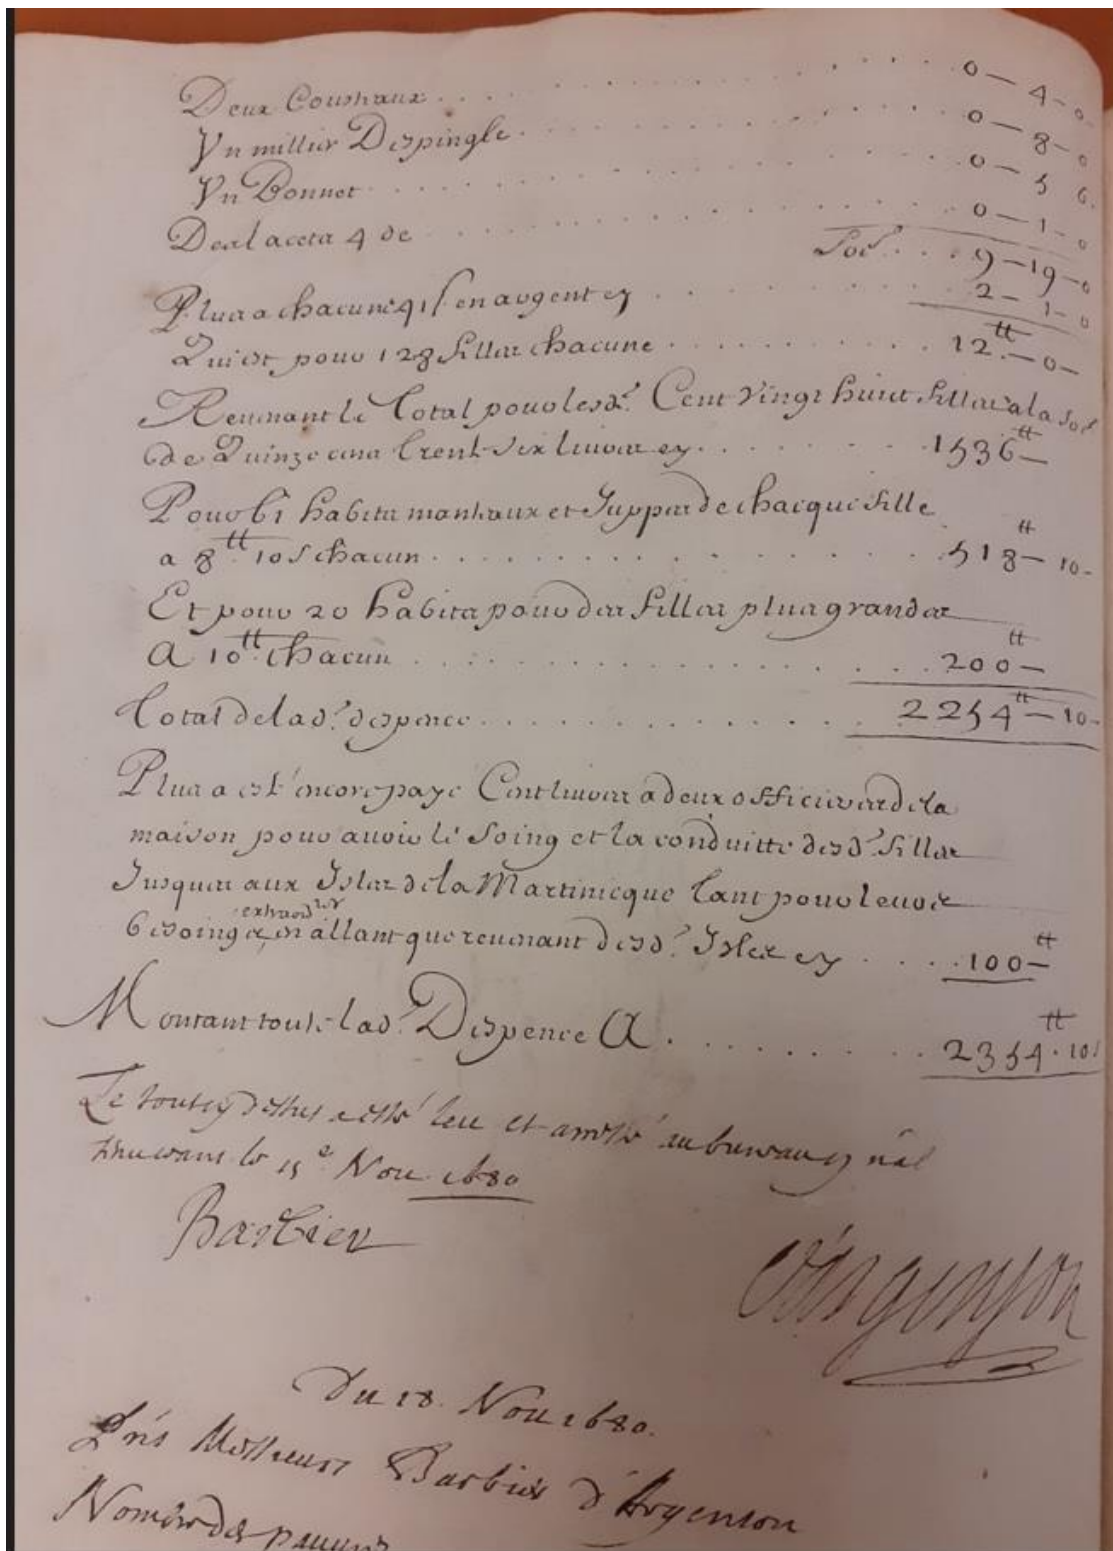 Deux Cousteaux . . . . . 0 — 4 — 0
Un millier Despingle . . . . . 0 — 8 — 0
Un Bonnet . . . . . 0 — 5 6.
Des lacets 4 de . . . . . 0 — 1 — 0
9 — 19 — 0
Plus a chacune 41 s en argent cy . . . . . 2 — 1 — 0
Qui est pour 128 filles chacune . . . . . 12.tt — 0 —
Revenant le Total pour lesd. Cent vingt huict filles a la
de Quinze cens trente six livres cy . . . . . 1536tt —
Pour 61 habits manteaux et Juppes de chacque fille
a 8tt 10 s chacun . . . . . 518tt — 10 —
Et pour 20 habits pour des filles plus grandes
A 10tt chacun . . . . . 200tt —
Total de lad. despence . . . . . 2254tt — 10 —
Plus a esté encore payé Cent livres a deux officieres de la
maison pour avoir le soing et la conduitte desd. filles
Jusques aux Isles de la Martinicque tant pour leurs
besoings extraord.res en allant que revenant desd. Isles cy . . . . . 100tt —
Montant toute lad. Despence A . . . . . 2354tt. 10 s
Le tout cy dessus a esté leu et arresté au bureau
le 15e Nov 1680
Barbier
d'Argenson
Du 18. Nov 1680.
Prés Messieurs Barbier d'Argenson